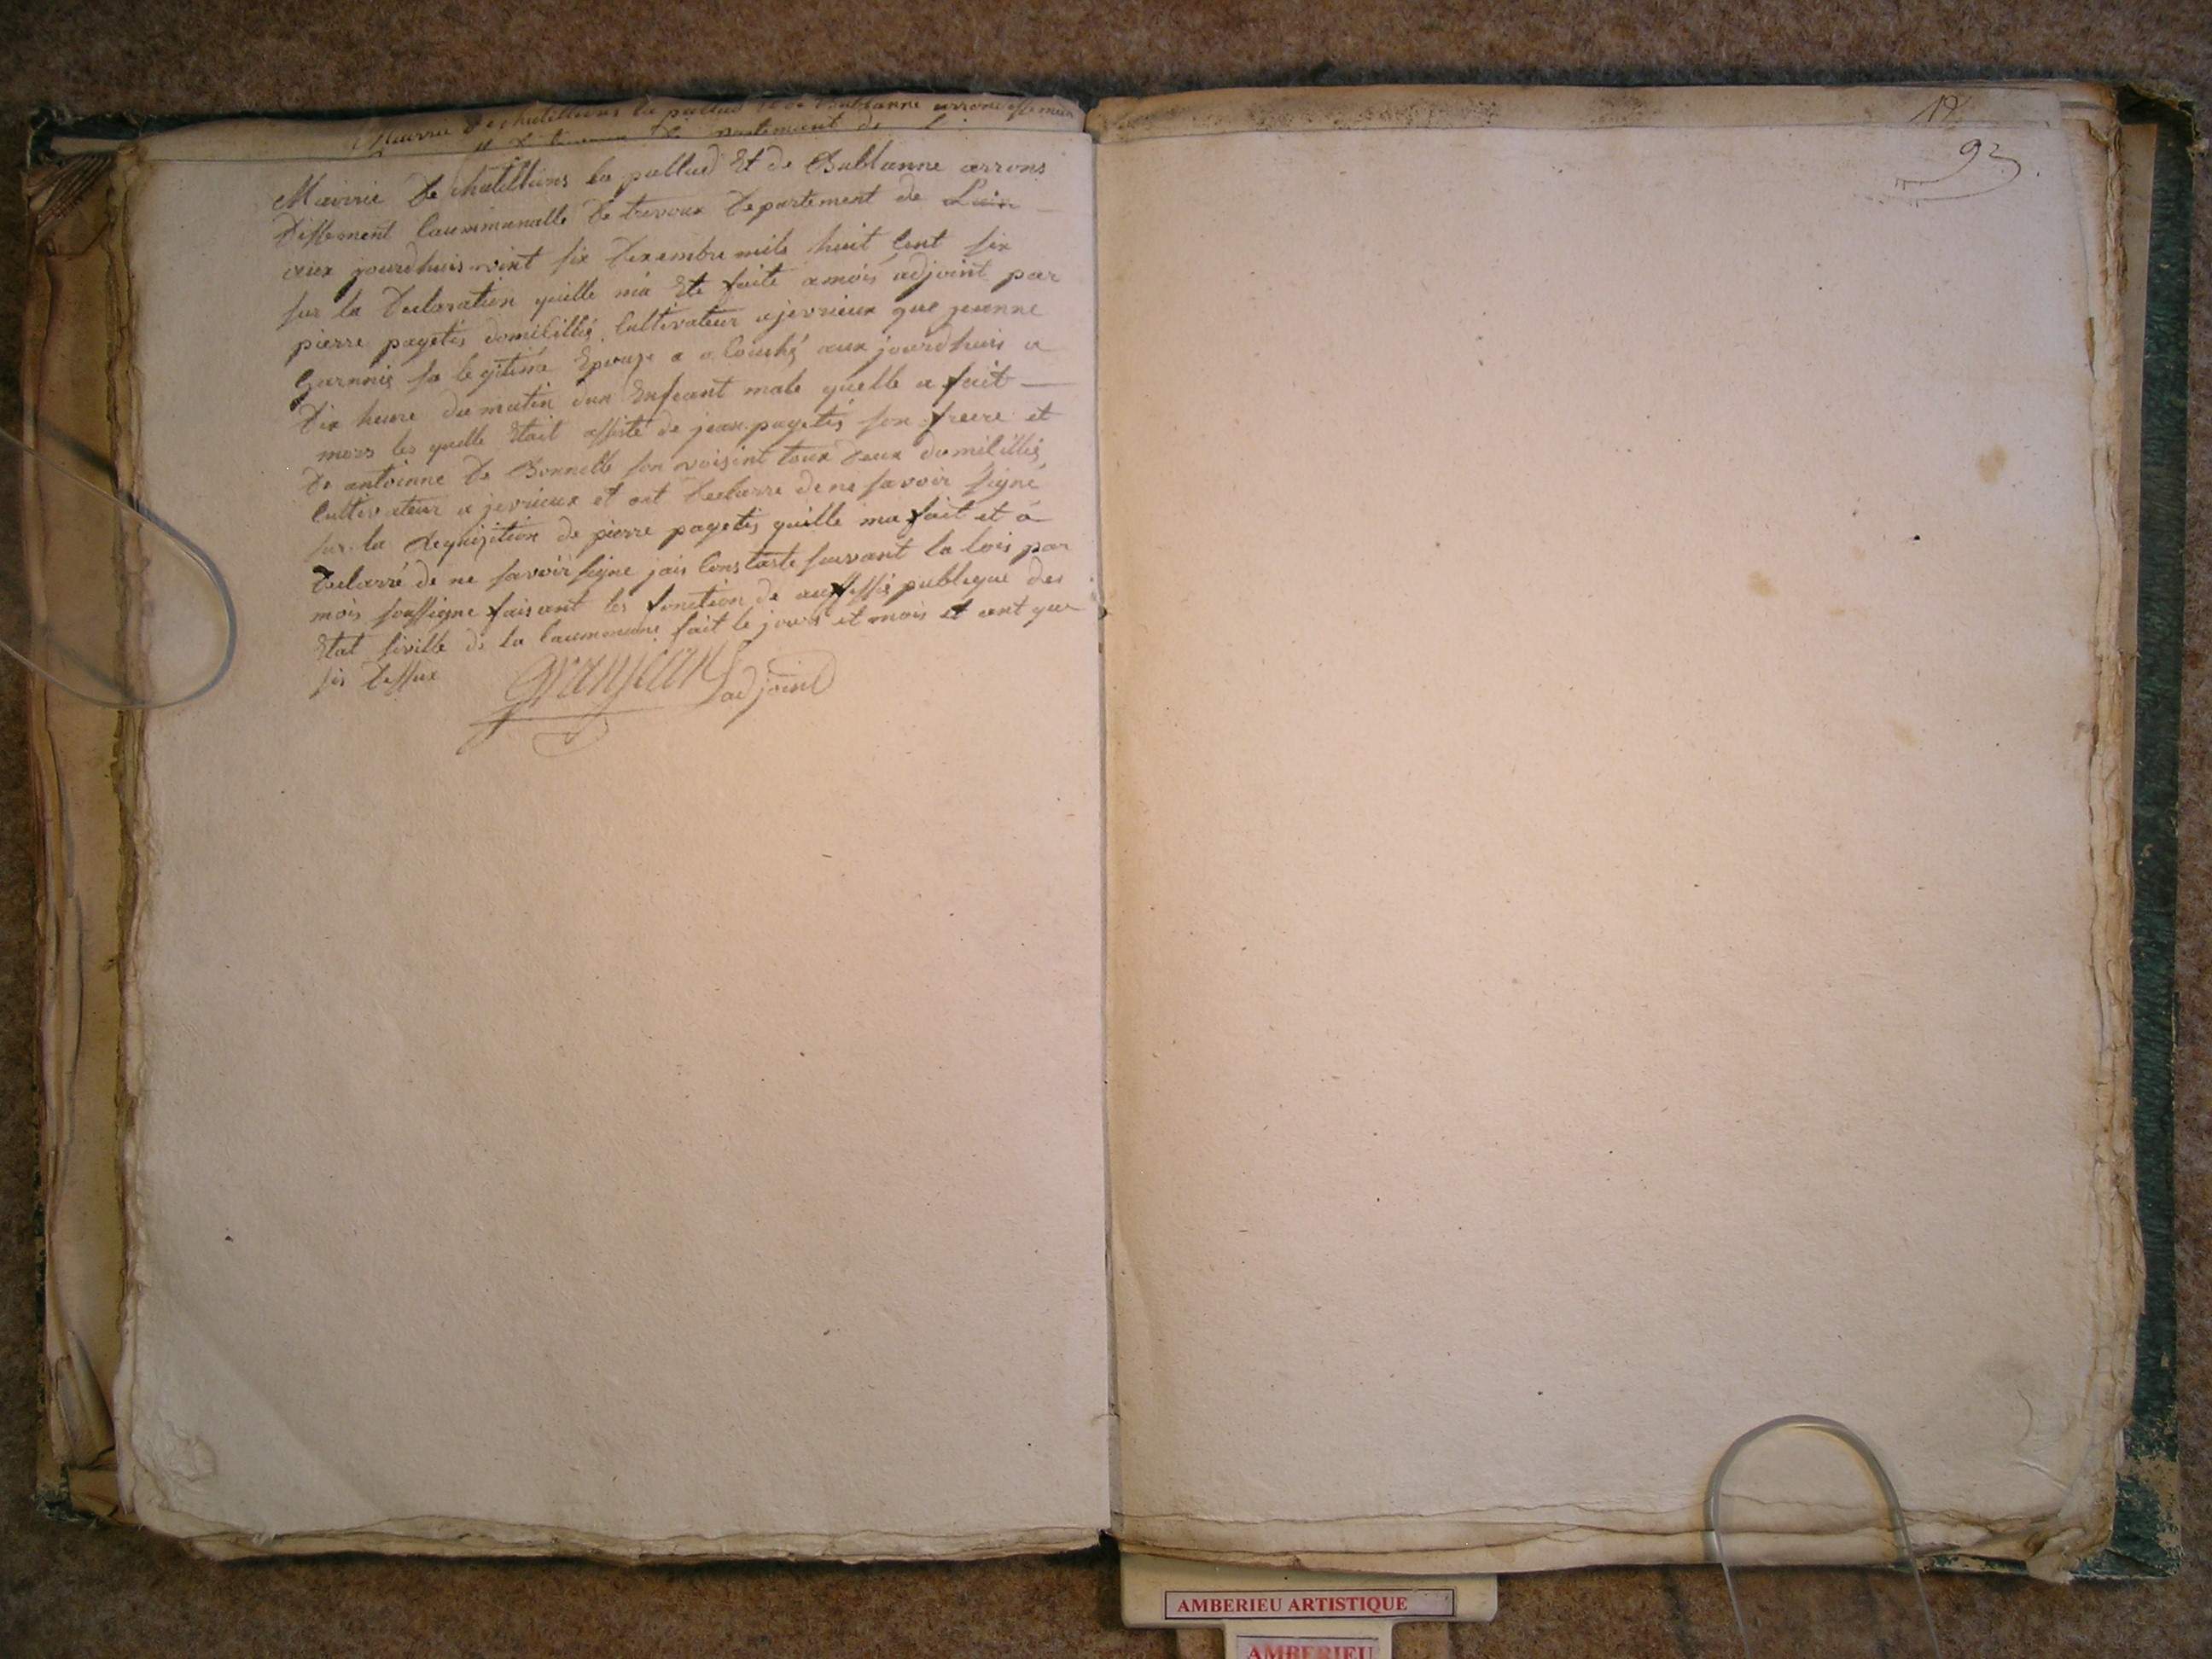 Mairrie De chatellions la pallud et de Bublanne arrondissemen
partement de
Mairrie De chatillions la pallud Et de Bublanne arrons
Dissement Caummunalle De trevoux Departement de Lain
aux jourdhuis vint six Dexembre mile huit Cent six
sur la Declaration quille má Ete faite amois adjoint par
pierre pagetis domicillié Cultivateur a jevrieux que jeanne
Garnnis sa legitime Epouze a a Couché aux jourdhuis a
Dix heure du matin dun Enfeant male quelle a fait —
mors les quelle Etait assisté de jean pagetis son freere et
De antoinne De Bonnelle son voisint toux Deux domicilliés
Cultivateur a jevrieux et ont Declarre de ne savoir signé
sur la Requizition de pierre pagetis quille ma fait et a
Declarré de ne savoir signe jais Constaste suivant la lois par
mois soussigne faisant les fonction de auffissié publique des
Etat siville de la Caummune fait le jours et mois et ant que
sis Dessux
Granjean adjoint
19
92
AMBERIEU ARTISTIQUE
AMBERIEU